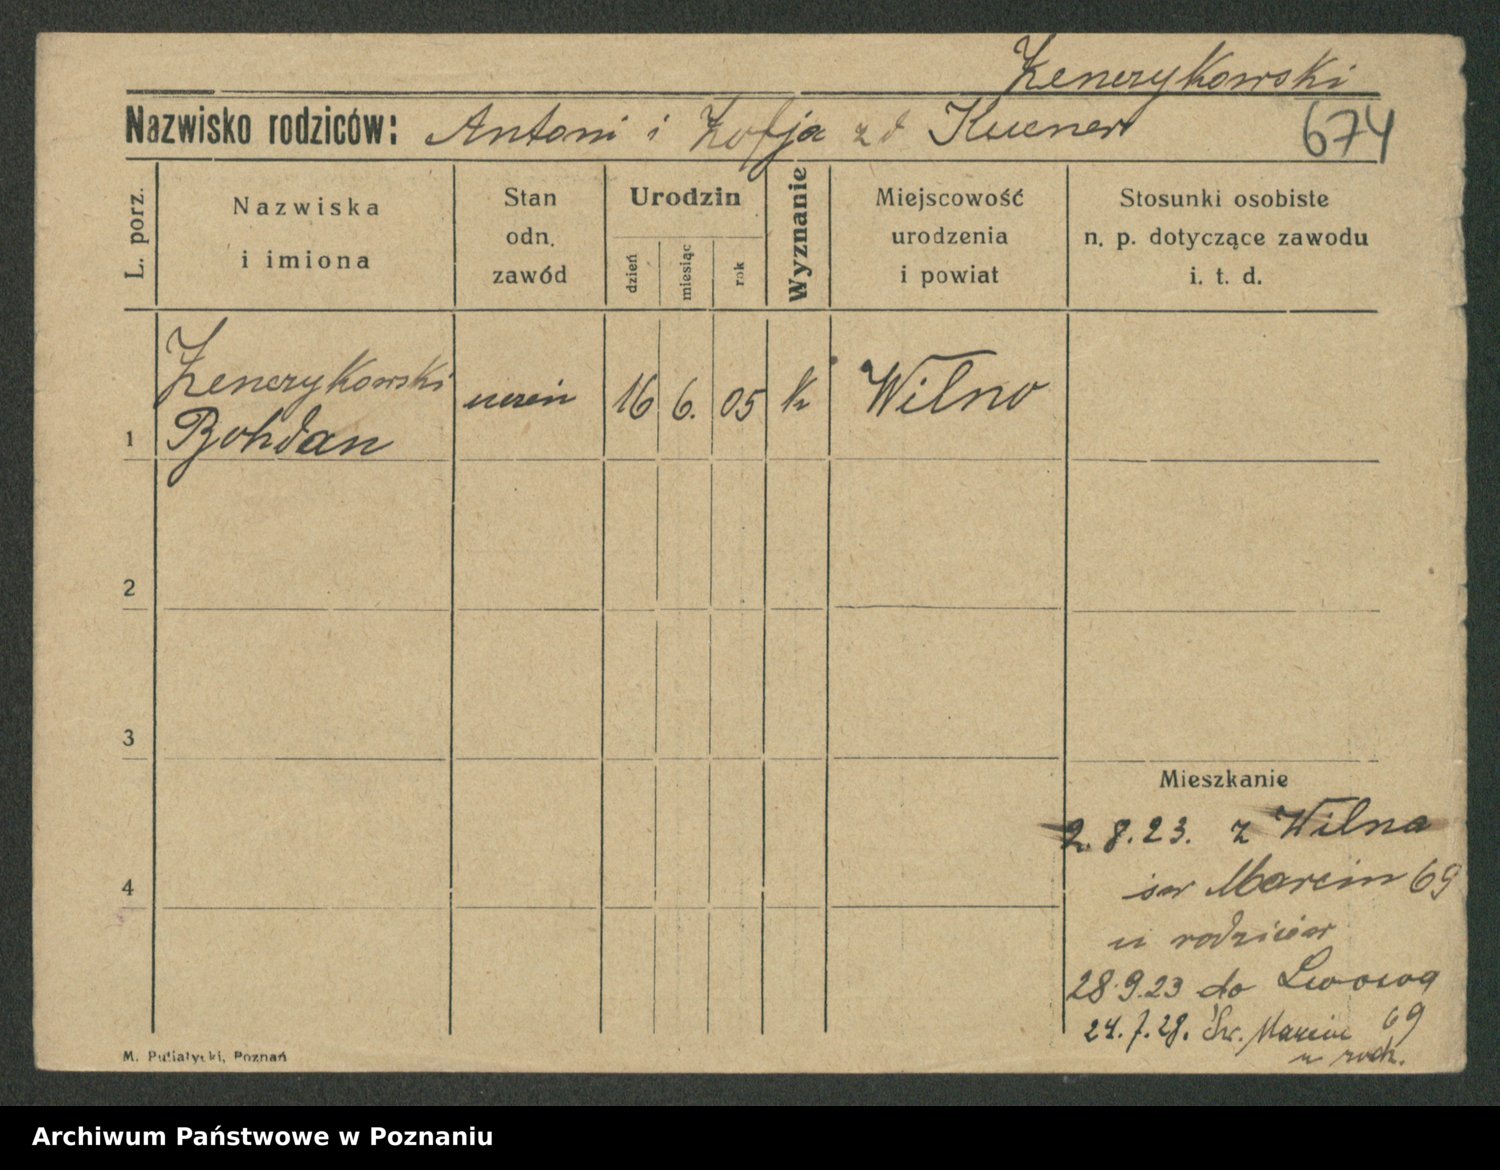 Zenczykowski
Nazwisko rodziców: Antoni i Zofja zd Kucner
674
L. porz.
Nazwiska
i imiona
Stan
odn.
zawód
Urodzin
dzień
miesiąc
rok
Wyznanie
Miejscowość
urodzenia
i powiat
Stosunki osobiste
n. p. dotyczące zawodu
i. t. d.
1
Zenczykowski
Bohdan
uczeń
16
6.
05
k
Wilno
2
3
4
Mieszkanie
2.8.23. z Wilna
św Marcin 69
u rodziców
28.9.23 do Lwowa
24.7.28. Św. Marcin 69
u rodz.
M. Putiatycki, Poznań
Archiwum Państwowe w Poznaniu